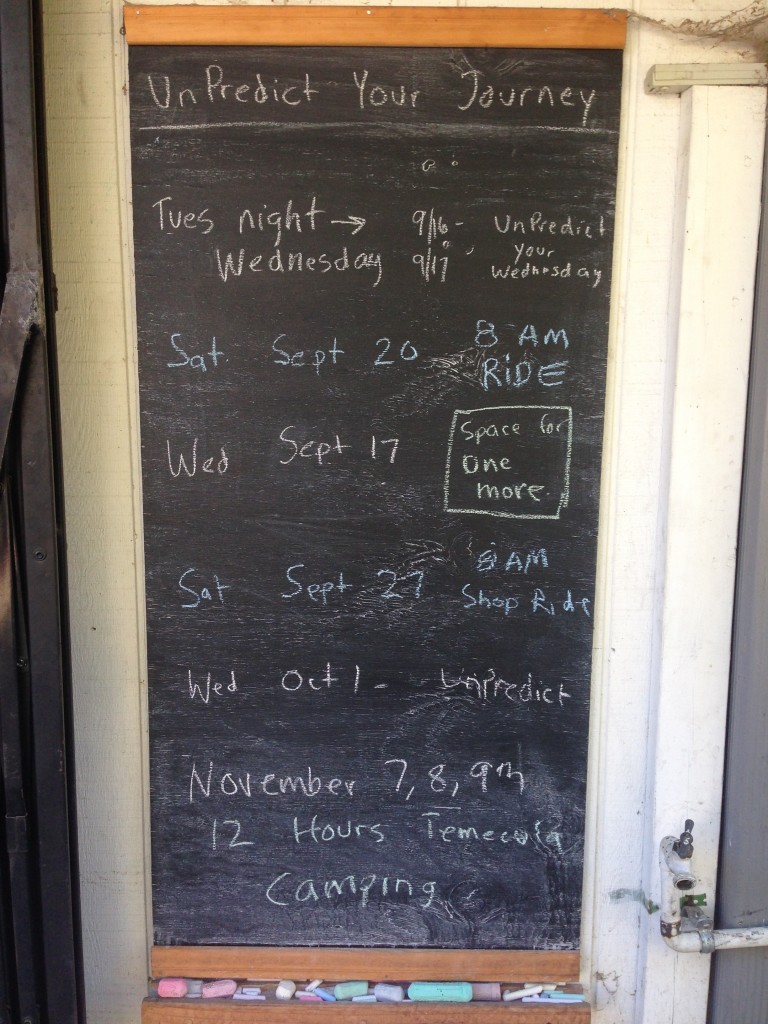 UnPredict Your Journey
Tues night → 9/16 - UnPredict
Wednesday 9/17 Your
Wednesday
Sat Sept 20 8 AM
RiDE
Wed Sept 17 Space for
One
more.
Sat Sept 27 8 AM
Shop Ride
Wed Oct 1 - UnPredict
November 7, 8, 9th
12 Hours Temecula
Camping